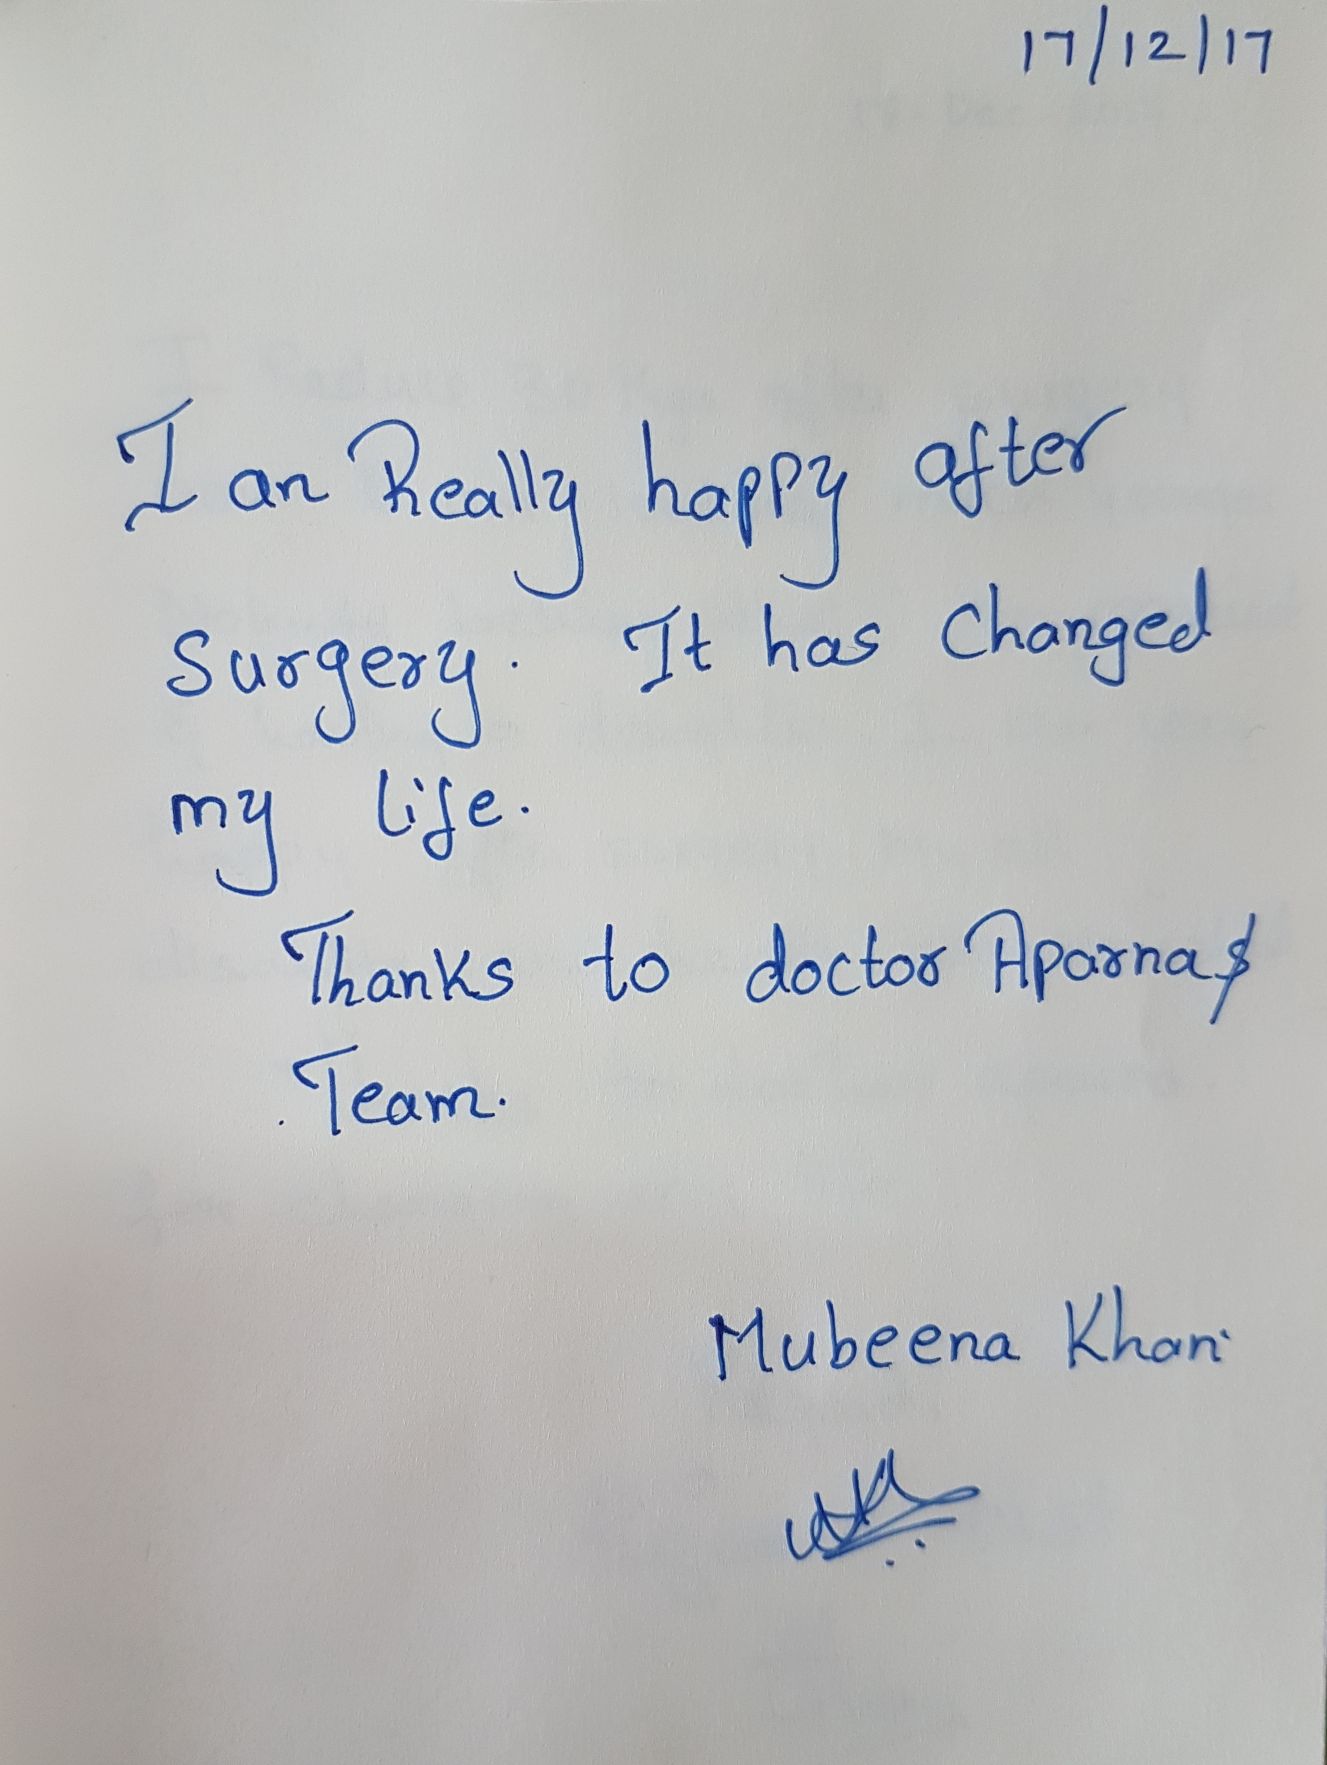 17/12/17
I an Really happy after
surgery. It has Changed
my life.
Thanks to doctor Aparna &
Team.
Mubeena Khan